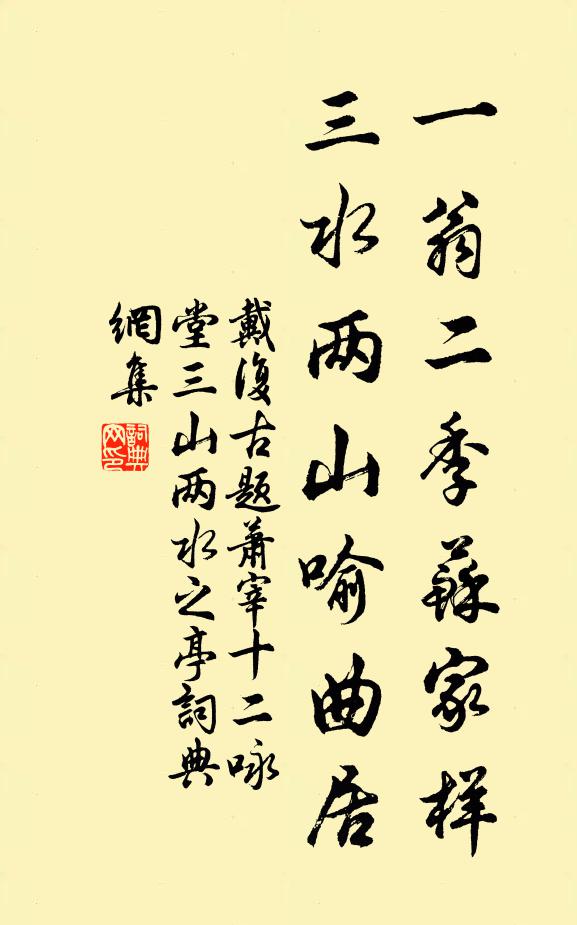 一翁二季蘇家样
三水两山喻曲居
戴復古题蕭宰十二咏
堂三山两水之亭詞典
網集
詞典
网印